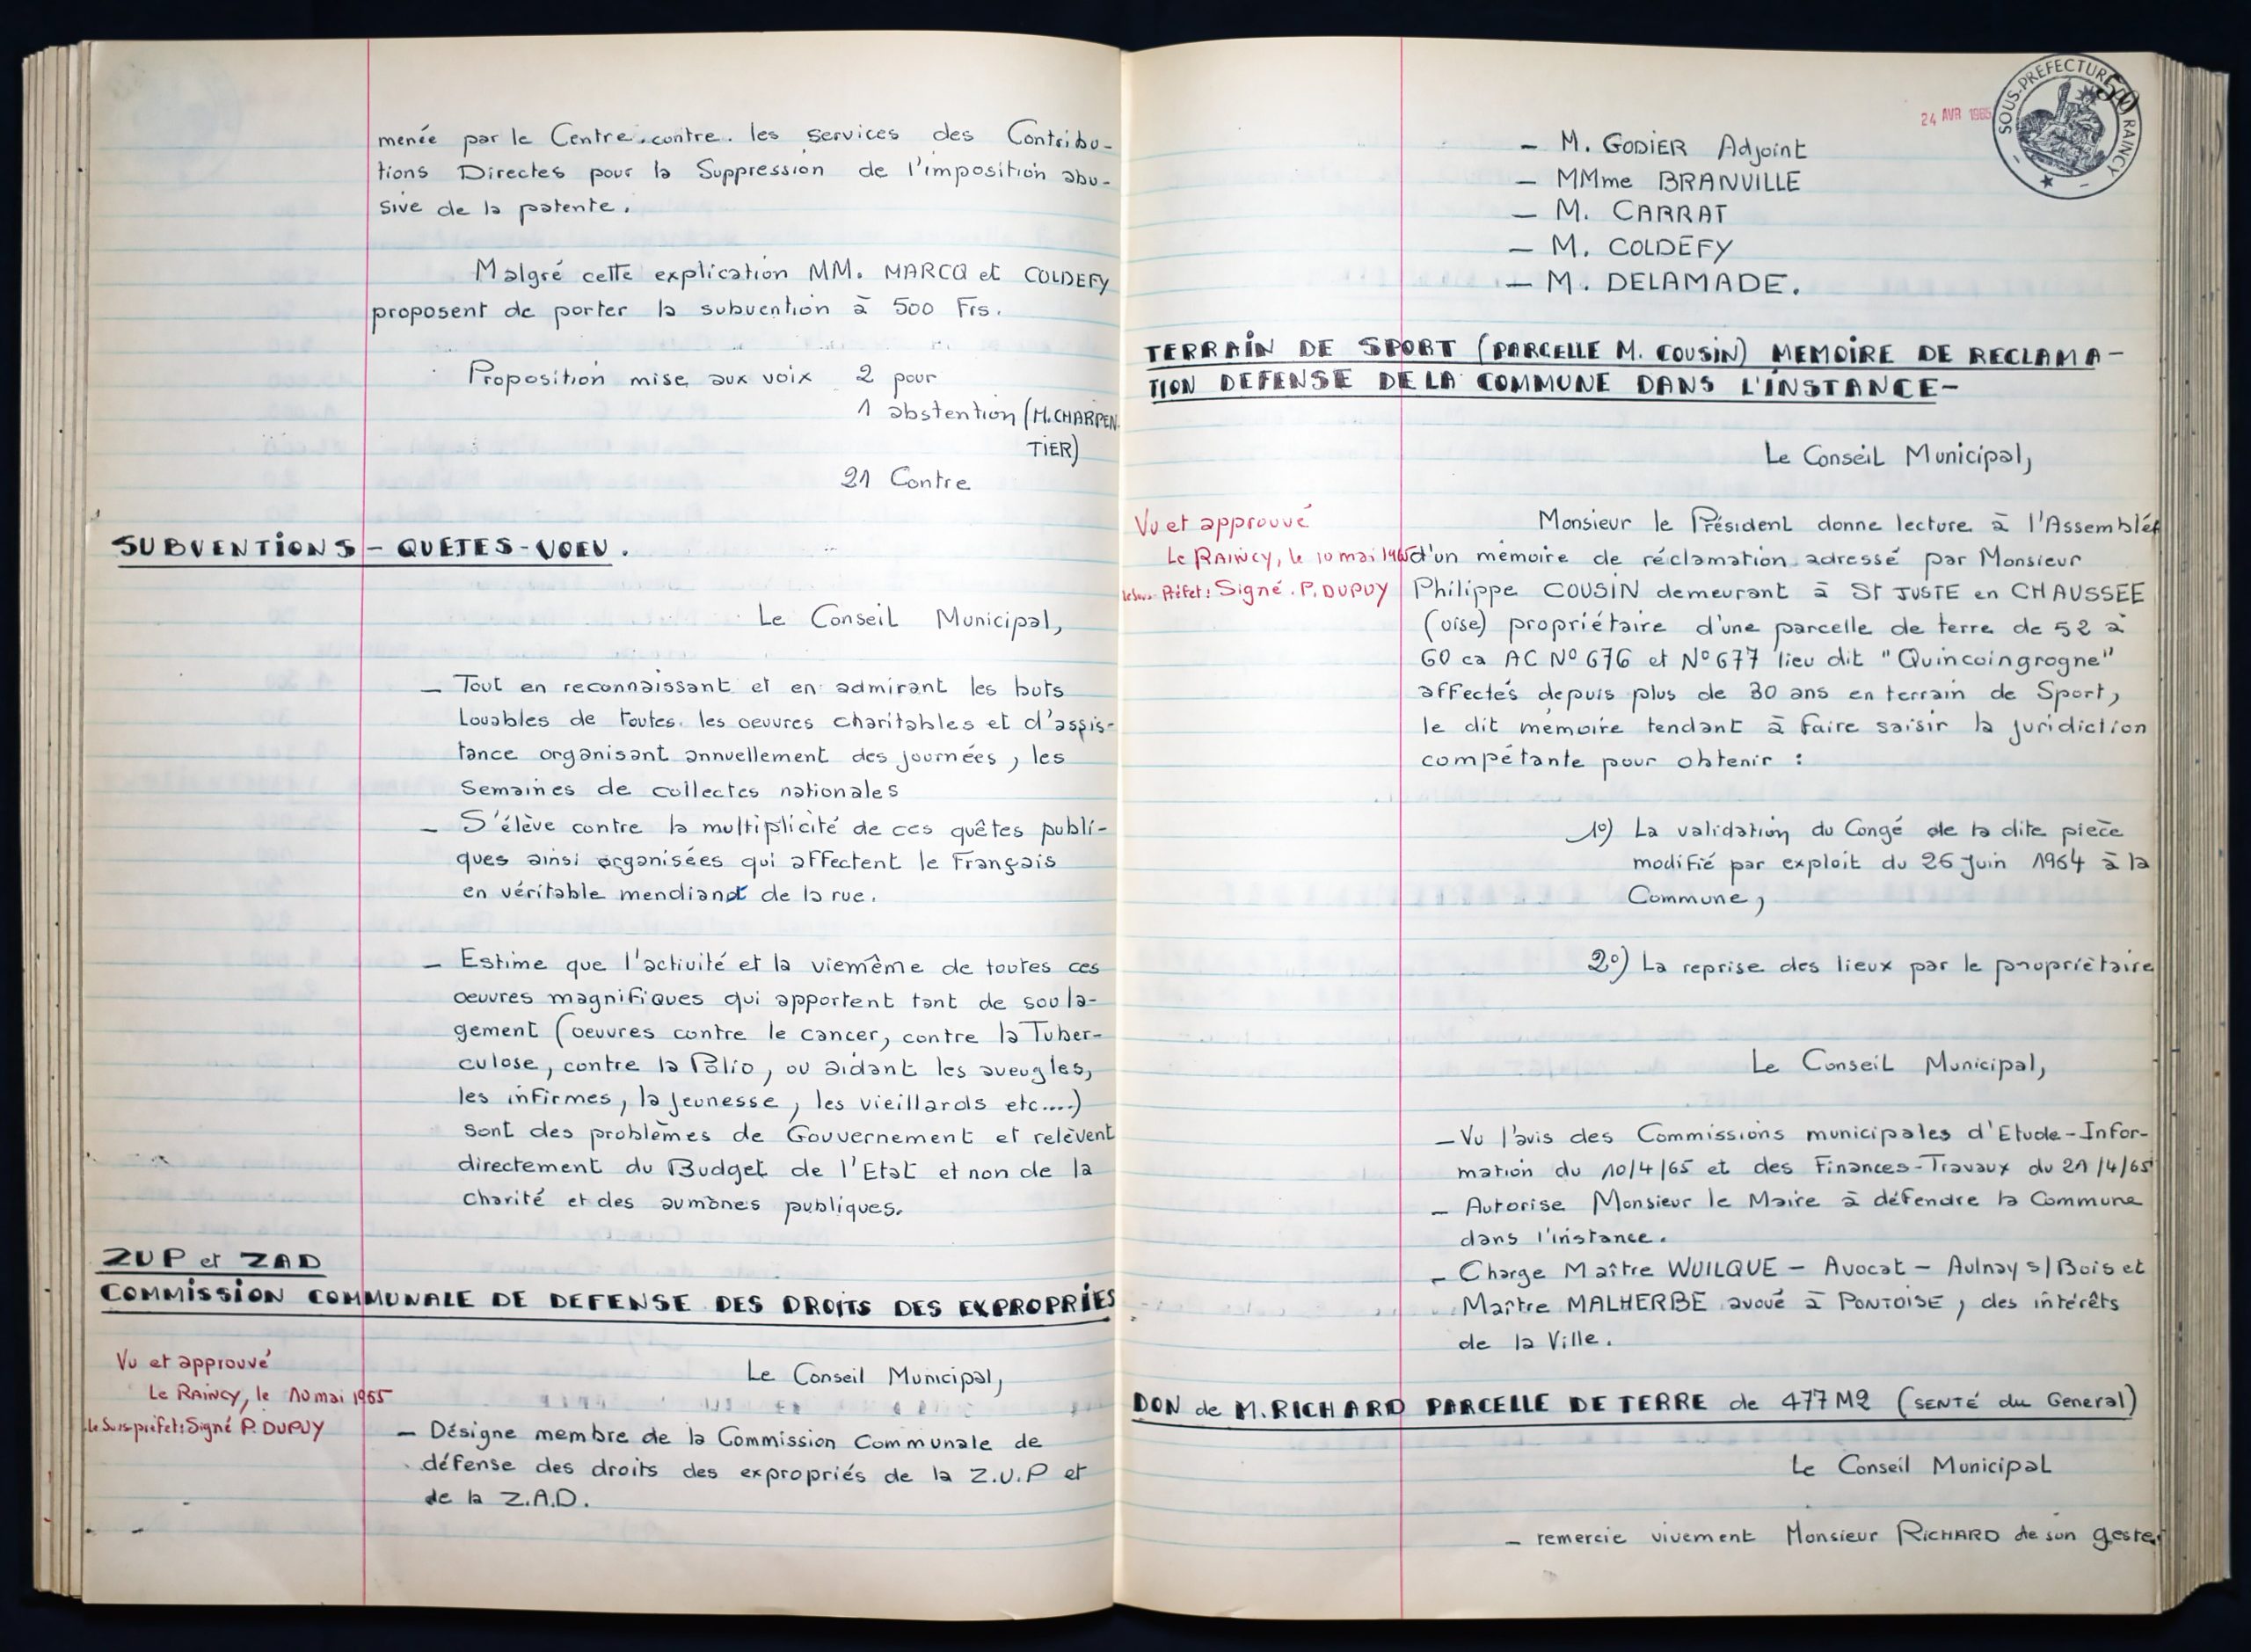 menée par le Centre.contre. les services des Contribu-
tions Directes pour la Suppression de l'imposition abu-
sive de la patente.
Malgré cette explication MM. MARCQ et COLDEFY
proposent de porter la subvention à 500 Frs.
Proposition mise aux voix 2 pour
1 abstention (M.CHARPEN
TIER)
21 Contre
SUBVENTIONS - QUETES - VOEU.
Le Conseil Municipal,
- Tout en reconnaissant et en admirant les buts
Louables de toutes les oeuvres charitables et d'assis-
tance organisant annuellement des journées, les
Semaines de collectes nationales
- S'élève contre la multiplicité de ces quêtes publi-
ques ainsi organisées qui affectent le Français
en véritable mendiant de la rue.
- Estime que l'activité et la viemême de toutes ces
oeuvres magnifiques qui apportent tant de soula-
gement (oeuvres contre le cancer, contre la Tuber-
culose, contre la Polio, ou aidant les aveugles,
les infirmes, la jeunesse, les vieillards etc....)
sont des problèmes de Gouvernement et relèvent
directement du Budget de l'Etat et non de la
charité et des aumônes publiques.
ZUP et ZAD
COMMISSION COMMUNALE DE DEFENSE DES DROITS DES EXPROPRIÉS
Vu et approuvé
Le RAINCY, le 10 mai 1965
Le Sous-préfet: Signé P. DUPUY
Le Conseil Municipal,
- Désigne membre de la Commission Communale de
défense des droits des expropriés de la Z.U.P et
de la Z.A.D.
24 AVR 1965
SOUS-PREFECTURE RAINCY
50
- M. GODIER Adjoint
- MMme BRANVILLE
- M. CARRAT
- M. COLDEFY
- M. DELAMADE.
TERRAIN DE SPORT (PARCELLE M. COUSIN) MEMOIRE DE RECLAMA-
TION DEFENSE DE LA COMMUNE DANS L'INSTANCE-
Le Conseil Municipal,
Vu et approuvé
Le RAINCY, le 10 mai 1965
Le Sous-Préfet: Signé. P. DUPUY
Monsieur le Président donne lecture à l'Assemblée
d'un mémoire de réclamation adressé par Monsieur
Philippe COUSIN demeurant à St JUSTE en CHAUSSEE
(oise) propriétaire d'une parcelle de terre de 52 a
60 ca AC N° 676 et N° 677 lieu dit "Quincoingrogne"
affectés depuis plus de 30 ans en terrain de Sport,
le dit mémoire tendant à faire saisir la juridiction
compétante pour obtenir :
1°) La validation du Congé de la dite pièce
modifié par exploit du 26 Juin 1964 à la
Commune,
2°) La reprise des lieux par le propriétaire
Le Conseil Municipal,
- Vu l'avis des Commissions municipales d'Etude-Infor-
mation du 10/4/65 et des Finances-Travaux du 21/4/65
- Autorise Monsieur le Maire à défendre la Commune
dans l'instance.
- Charge Maître WUILQUE - Avocat - Aulnay s/Bois et
Maître MALHERBE avoué à PONTOISE, des intérêts
de la Ville.
DON de M. RICHARD PARCELLE DE TERRE de 477 M2 (SENTE du General)
Le Conseil Municipal
- remercie vivement Monsieur RICHARD de son geste.